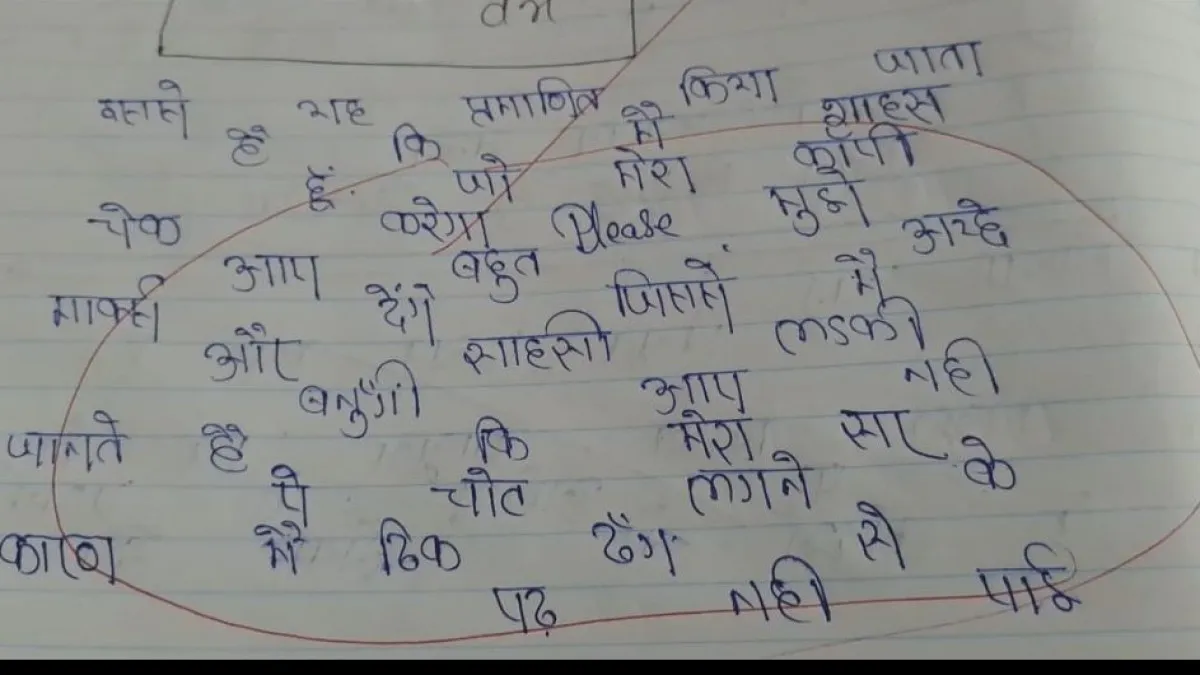 वर्ग
इससे यह प्रमाणित किया जाता
है कि मैं शाहस
हूँ. जो मेरा कॉपी
चेक करेगा Please मुझे
आप बहुत अच्छे
मार्क्स देंगे जिससे मैं
और साहसी लडकी
बनुँगी आप नही
जानते है कि मेरा सार के
पे चोट लगने
कारण मैं ठिक ढँग से
पढ़ नही पाई